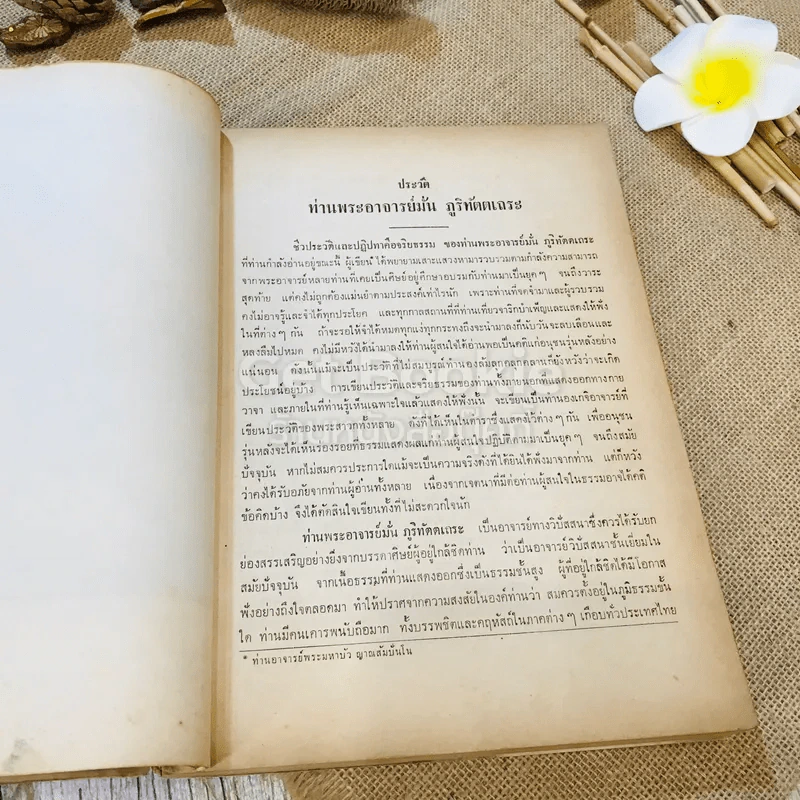 ประวัติ
ท่านพระอาจารย์มั่น ภูริทัตตเถระ
ชีวประวัติและปฏิปทาคือจริยธรรม ของท่านพระอาจารย์มั่น ภูริทัตตเถระ
ที่ท่านกำลังอ่านอยู่ขณะนี้ ผู้เขียน* ได้พยายามเสาะแสวงหามารวบรวมตามกำลังความสามารถ
จากพระอาจารย์หลายท่านที่เคยเป็นศิษย์อยู่ศึกษาอบรมกับท่านมาเป็นยุคๆ จนถึงวาระ
สุดท้าย แต่คงไม่ถูกต้องแม่นยำตามประสงค์เท่าไรนัก เพราะท่านที่จดจำมาและผู้รวบรวม
คงไม่อาจรู้และจำได้ทุกประโยค และทุกกาลสถานที่ที่ท่านเที่ยวจาริกบำเพ็ญและแสดงให้ฟัง
ในที่ต่างๆ กัน ถ้าจะรอให้จำได้หมดทุกแง่ทุกกระทงถึงจะนำมาลงก็นับวันจะลบเลือนและ
หลงลืมไปหมด คงไม่มีหวังได้นำมาลงให้ท่านผู้สนใจได้อ่านพอเป็นคติแก่อนุชนรุ่นหลังอย่าง
แน่นอน ดังนั้นแม้จะเป็นประวัติที่ไม่สมบูรณ์ทำนองล้มลุกคลุกคลานก็ยังหวังว่าจะเกิด
ประโยชน์อยู่บ้าง การเขียนประวัติและจริยธรรมของท่านทั้งภายนอกที่แสดงออกทางกาย
วาจา และภายในที่ท่านรู้เห็นเฉพาะใจแล้วแสดงให้ฟังนั้น จะเขียนเป็นทำนองเกจิอาจารย์ที่
เขียนประวัติของพระสาวกทั้งหลาย ดังที่ได้เห็นในตำราซึ่งแสดงไว้ต่างๆ กัน เพื่ออนุชน
รุ่นหลังจะได้เห็นร่องรอยที่ธรรมแสดงผลแก่ท่านผู้สนใจปฏิบัติตามมาเป็นยุคๆ จนถึงสมัย
ปัจจุบัน หากไม่สมควรประการใดแม้จะเป็นความจริงดังที่ได้ยินได้ฟังมาจากท่าน แต่ก็หวัง
ว่าคงได้รับอภัยจากท่านผู้อ่านทั้งหลาย เนื่องจากเจตนาที่มีต่อท่านผู้สนใจในธรรมอาจได้คติ
ข้อคิดบ้าง จึงได้ตัดสินใจเขียนทั้งที่ไม่สะดวกใจนัก
ท่านพระอาจารย์มั่น ภูริทัตตเถระ เป็นอาจารย์ทางวิปัสสนาซึ่งควรได้รับยก
ย่องสรรเสริญอย่างยิ่งจากบรรดาศิษย์ผู้อยู่ใกล้ชิดท่าน ว่าเป็นอาจารย์วิปัสสนาชั้นเยี่ยมใน
สมัยปัจจุบัน จากเนื้อธรรมที่ท่านแสดงออกซึ่งเป็นธรรมชั้นสูง ผู้ที่อยู่ใกล้ชิดได้มีโอกาส
ฟังอย่างถึงใจตลอดมา ทำให้ปราศจากความสงสัยในองค์ท่านว่า สมควรตั้งอยู่ในภูมิธรรมขั้น
ใด ท่านมีคนเคารพนับถือมาก ทั้งบรรพชิตและคฤหัสถ์ในภาคต่างๆ เกือบทั่วประเทศไทย
* ท่านอาจารย์พระมหาบัว ญาณสัมปันโน